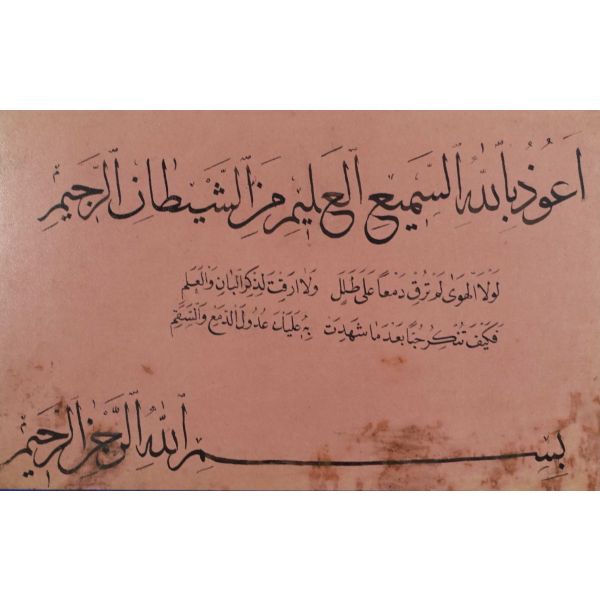 اَعُوذُ بِاللهِ السَّمِيعِ العَلِيمِ مِنَ الشَّيْطَانِ الرَّجِيمِ
لَوْلَا الهَوَى لَمْ تُرِقْ دَمْعاً عَلَى طَلَلِ وَلَا اَرِقْتَ لِذِكْرِ البَانِ وَالعَلَمِ
فَكَيْفَ تُنْكِرُ حُبّاً بَعْدَ مَا شَهِدَتْ بِهِ عَلَيْكَ عُدُولُ الدَّمْعِ وَالسَّقَمِ
بِسْمِ اللهِ الرَّحْمٰنِ الرَّحِيمِ